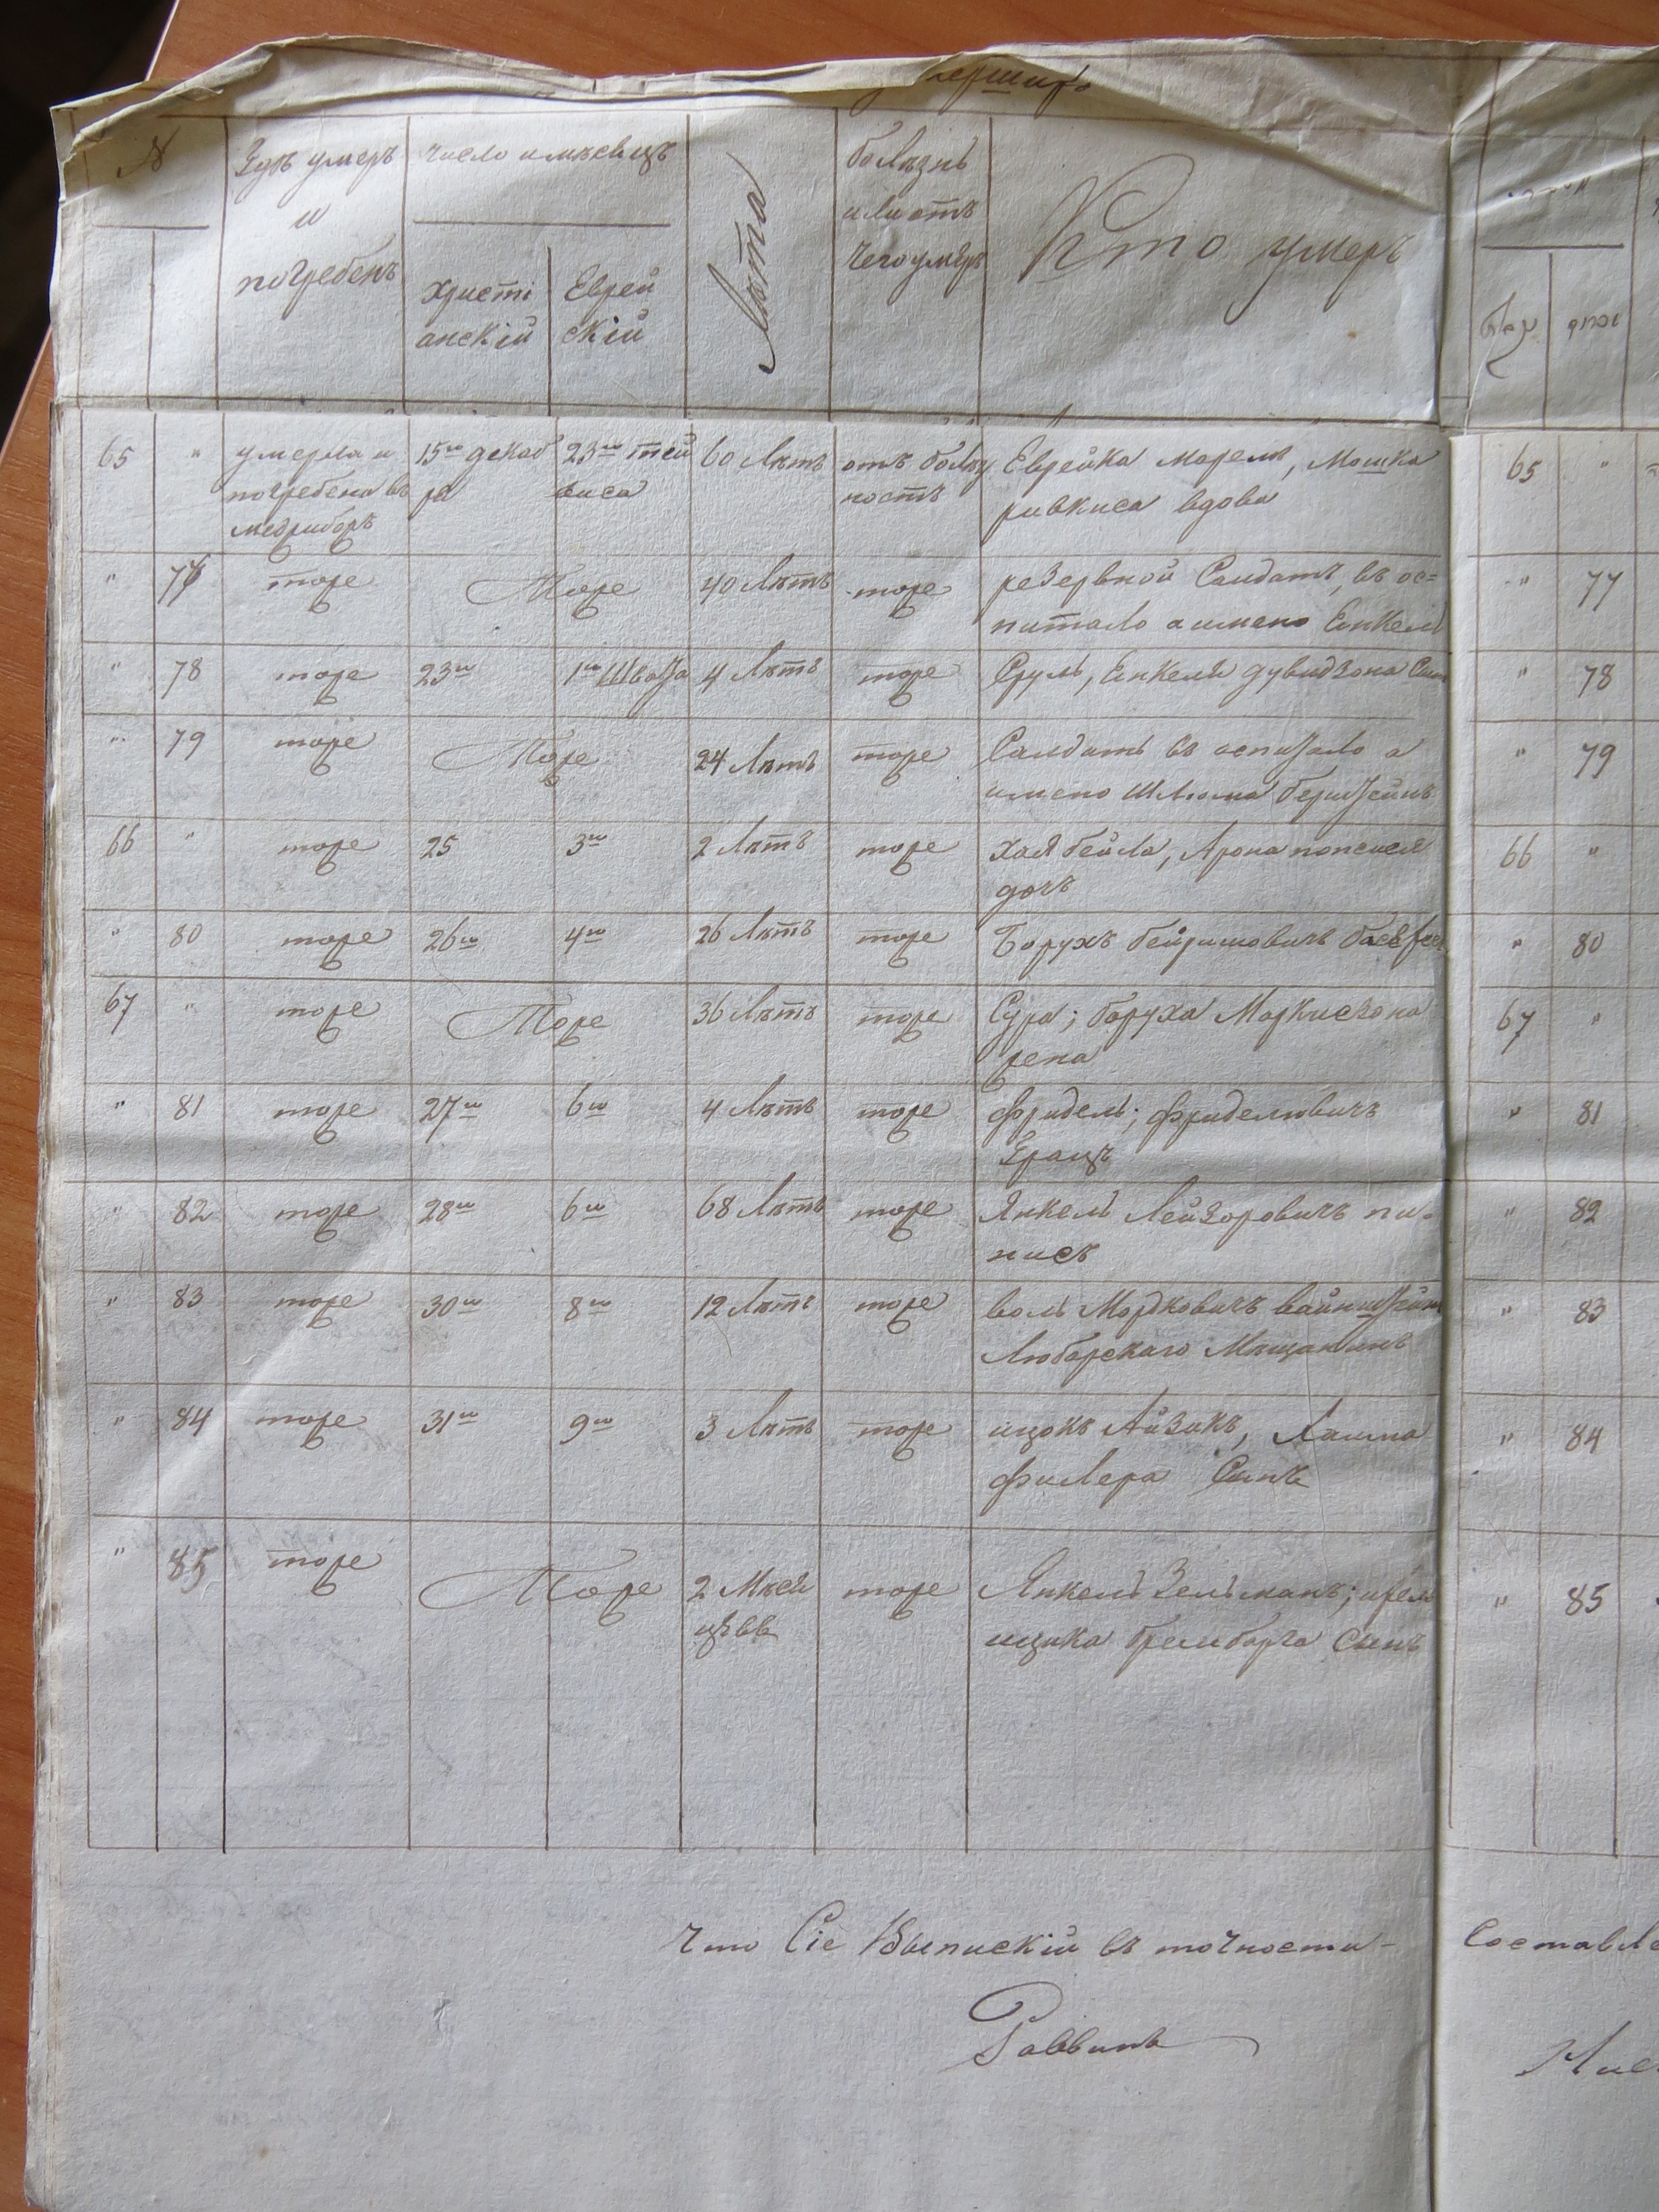 №
Гдѣ умеръ
и
погребенъ
число и мѣсецъ
Христі
анскій
Еврей
скій
Лѣта
болѣзнь
или отъ
чего умеръ
Кто умеръ
65 " умерла и 15го декаб 23го тей 60 Лѣтъ отъ болѣз Еврейка Марем, Мошка 65 "
погребена въ ря виса ность ривкиса вдова
медриборъ
" 77 тоже Тоже 40 Лѣтъ тоже резервной Салдатъ, въ ос= " 77
питало а имено Енкель
" 78 тоже 23го 1го Швата 4 Лѣтъ тоже Сруль, Енкеля дувидзона Сынъ " 78
" 79 тоже Тоже 24 Лѣтъ тоже Салдатъ въ оспитало а " 79
имено Шлиома берштейнъ
66 " тоже 25 3го 2 Лѣтъ тоже хая бейла, Арона 66 "
дочъ
" 80 тоже 26го 4го 26 Лѣтъ тоже Борухъ " 80
67 " тоже Тоже 36 Лѣтъ тоже Сура; боруха Маркисзона 67 "
жена
" 81 тоже 27го 6го 4 Лѣтъ тоже фридель; фриделювичъ " 81
Грацъ
" 82 тоже 28го 6го 68 Лѣтъ тоже Янкель Лейзоровичъ пи= " 82
нисъ
" 83 тоже 30го 8го 12 Лѣтъ тоже воль Мордковичъ вайнштейнъ " 83
Любарскаго Мѣщанинъ
" 84 тоже 31го 9го 3 Лѣтъ тоже ицокъ Айзикъ, Хаима " 84
филера Сынъ
" 85 тоже Тоже 2 Мѣсе тоже Янкель Зельманъ; " 85
цѣвв ицика Сынъ
Что Сіе Выпискій въ точности- Составле
Раввинъ